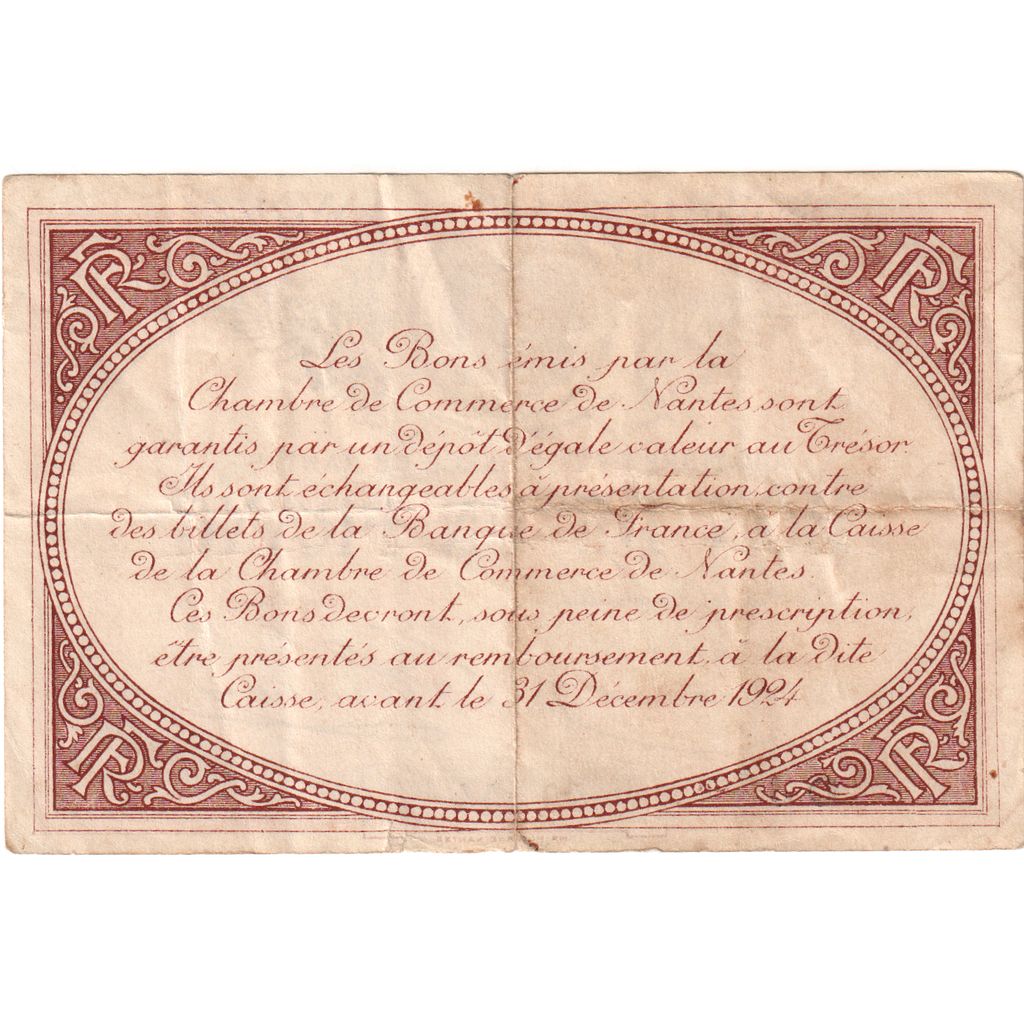 RF
RF
Les Bons émis par la
Chambre de Commerce de Nantes sont
garantis par un dépôt d'égale valeur au Trésor.
Ils sont échangeables à présentation, contre
des billets de la Banque de France, à la Caisse
de la Chambre de Commerce de Nantes.
Ces Bons devront, sous peine de prescription,
être présentés au remboursement, à la dite
Caisse, avant le 31 Décembre 1924
RF
RF